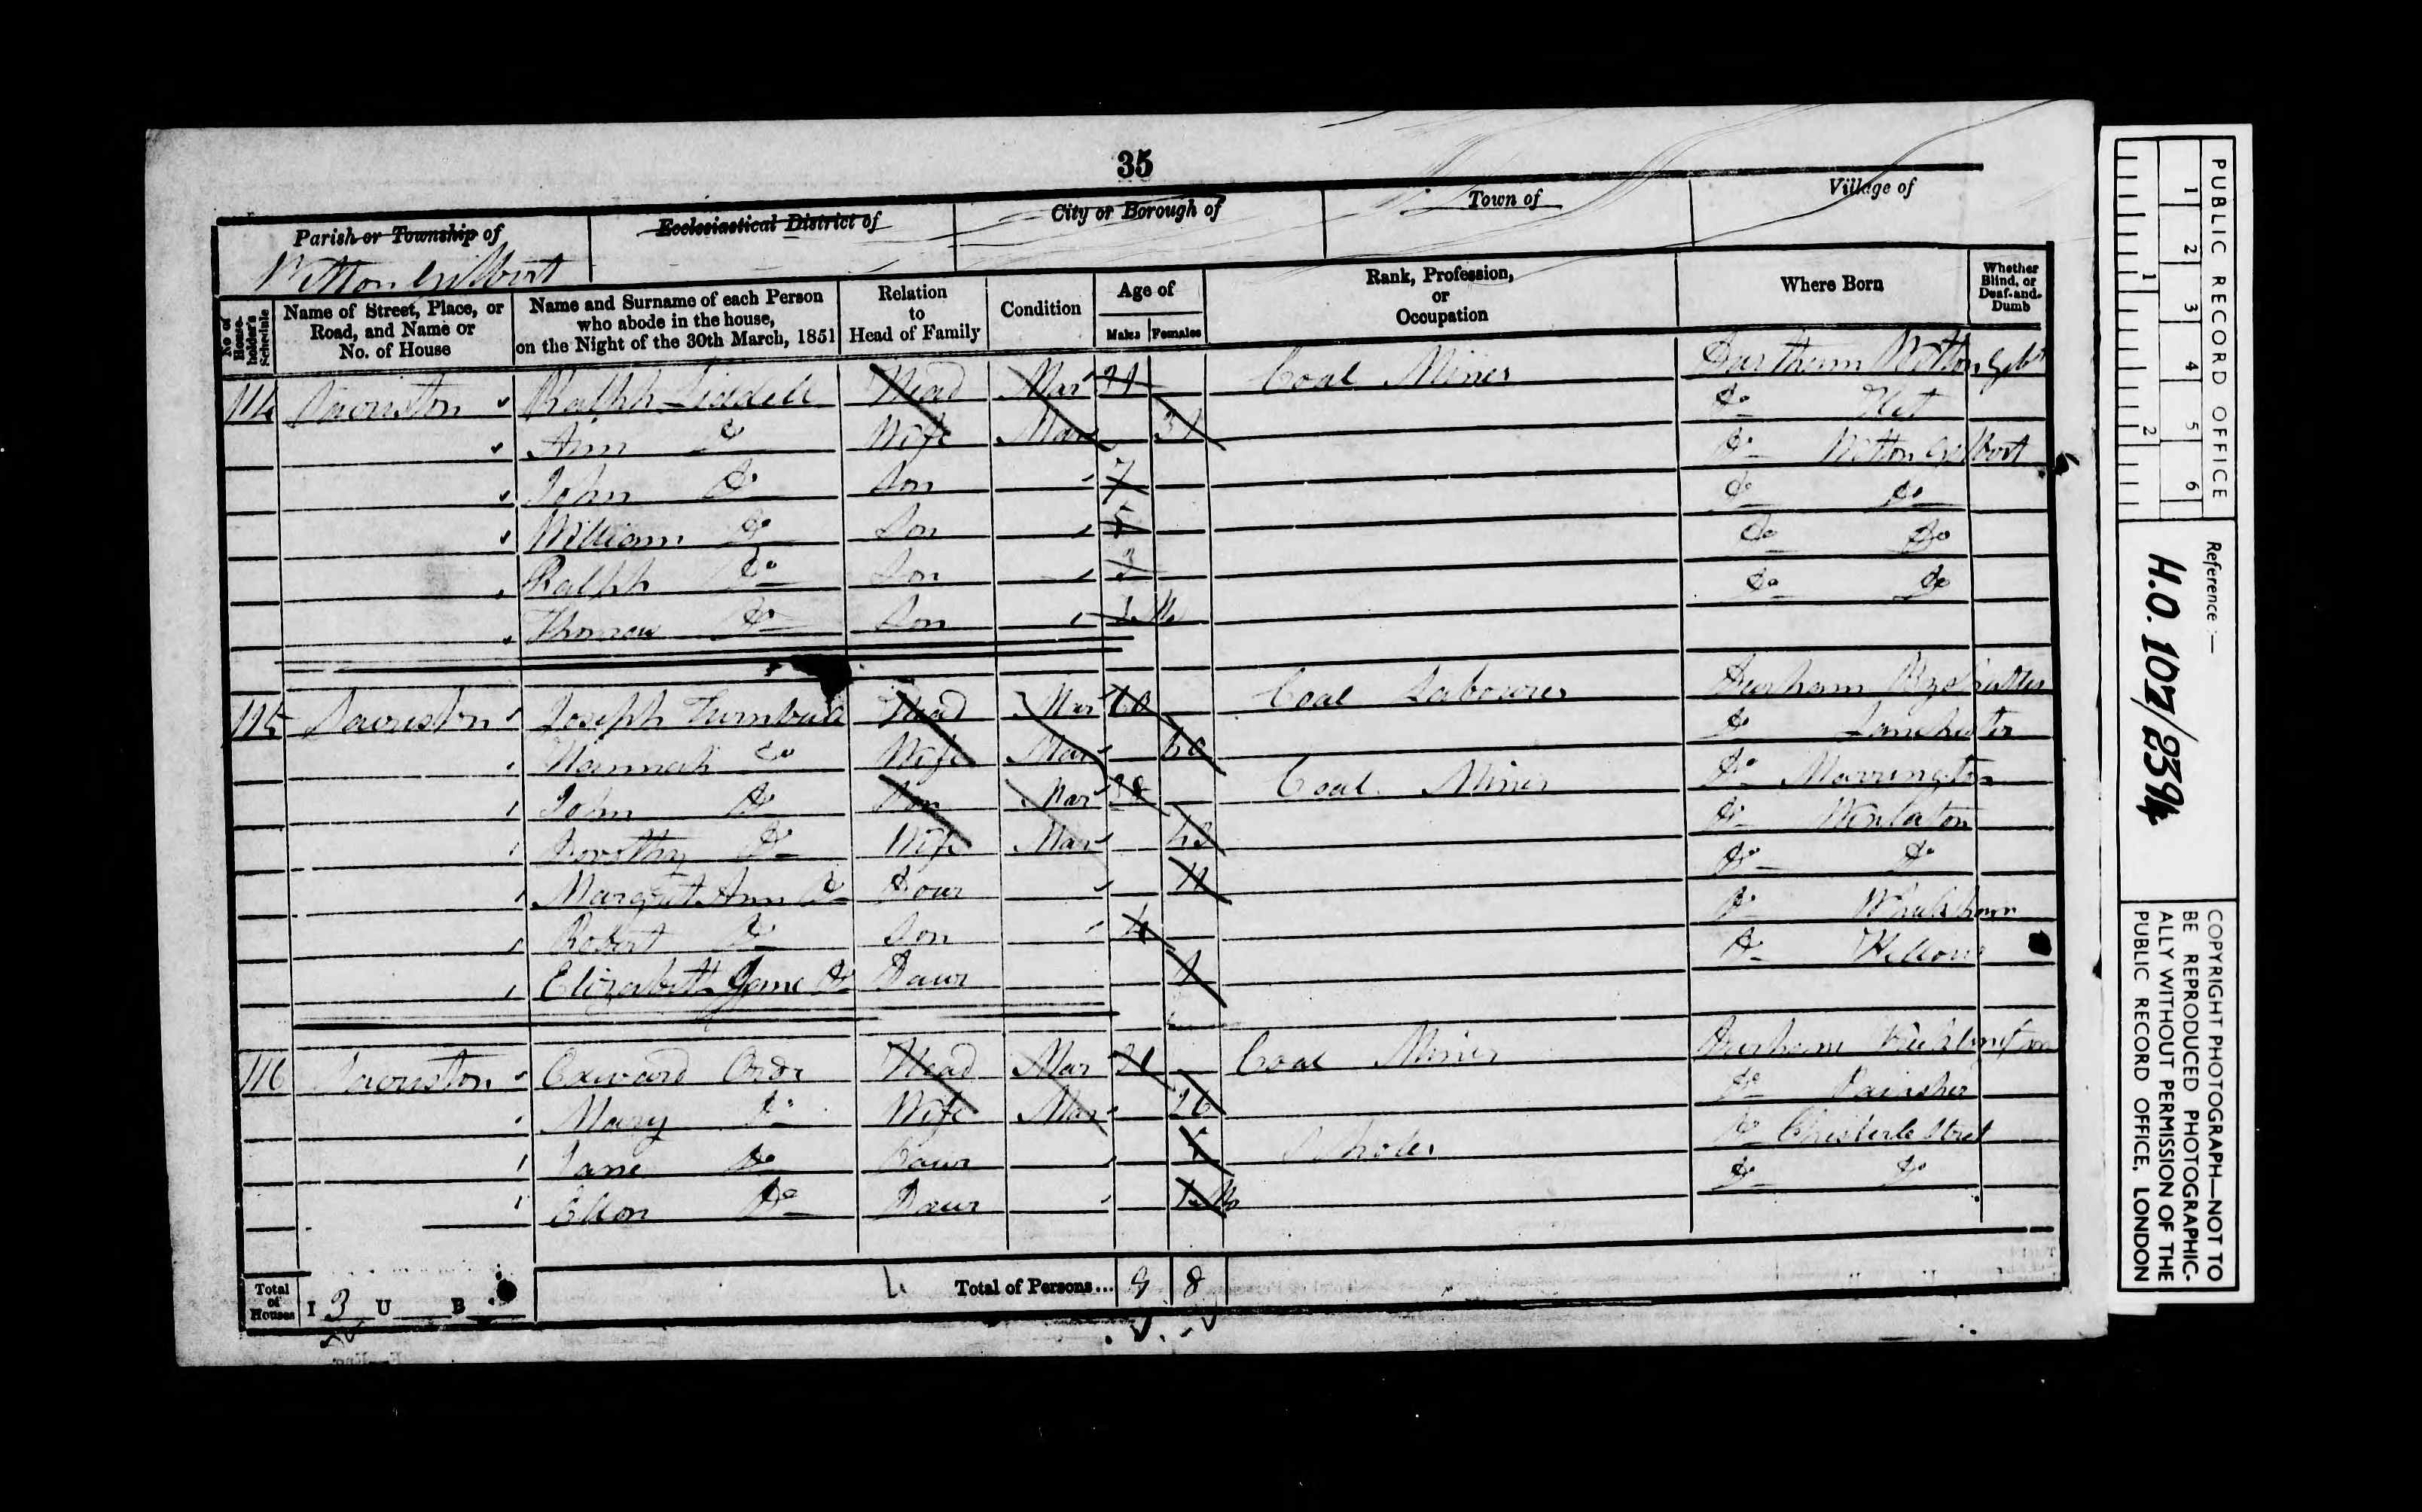 35
Parish or Township of
Ecclesiastical District of
City or Borough of
Town of
Village of
Witton Gilbert
No. of House-holder's Schedule
Name of Street, Place, or Road, and Name or No. of House
Name and Surname of each Person who abode in the house, on the Night of the 30th March, 1851
Relation to Head of Family
Condition
Age of
Males Females
Rank, Profession, or Occupation
Where Born
Whether Blind, or Deaf-and-Dumb
114 Sacriston Ralph Liddell Head Mar Coal Miner Durham Witton Gilbt
Ann Do Wife Mar Do
John Do Son 7 Do Witton Gilbert
William Do Son 5 Do Do
Ralph Do Son 3 Do Do
Thomas Do Son Do Do
115 Sacriston Joseph Turnbull Head Mar 60 Coal Labourer Durham
Hannah Do Wife Mar 60 Do Lanchester
John Do Son Mar 38 Coal Miner Do Merrington
Dorothy Do Wife Mar Do Winlaton
Margret Ann Do Daur 11 Do Do
Robert Do Son 4 Do
Elizabeth Jane Do Daur 1 Do
116 Sacriston Edward Ord Head Mar Coal Miner Durham
Mary Do Wife Mar 26 Do Painsher
Jane Do Daur Scholar Do Chester le Street
Ellen Do Daur Do Do
Total of Houses
I 3 U B
Total of Persons... 9 8
PUBLIC RECORD OFFICE
1 2 3 4 5 6
1 2
Reference:—
H.O. 107/2394
COPYRIGHT PHOTOGRAPH—NOT TO
BE REPRODUCED PHOTOGRAPHIC-
ALLY WITHOUT PERMISSION OF THE
PUBLIC RECORD OFFICE, LONDON